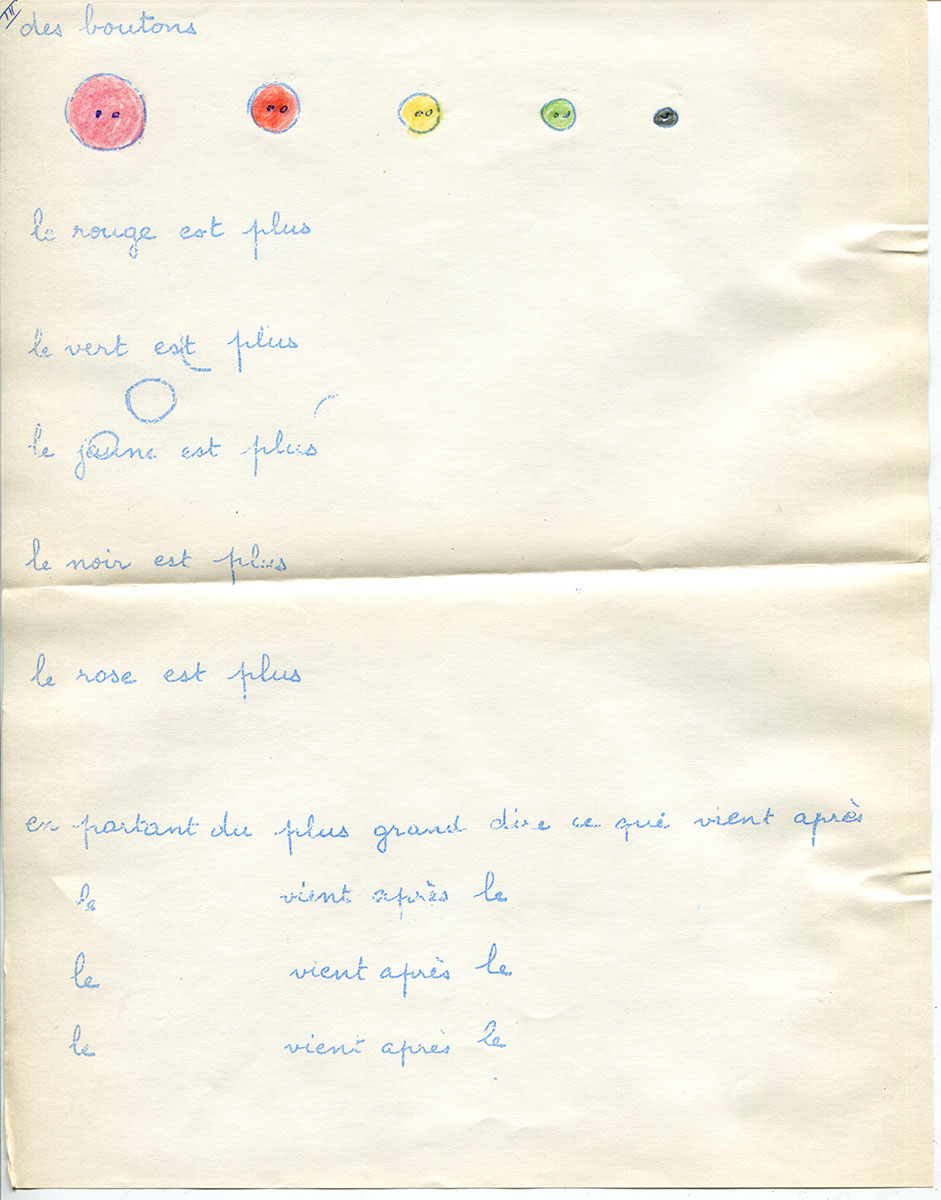 III
des boutons
le rouge est plus
le vert est plus
le jaune est plus
le noir est plus
le rose est plus
en partant du plus grand dire ce qui vient après
le vient après le
le vient après le
le vient après le